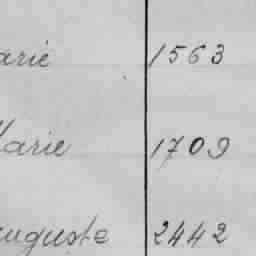 arie 1563
Marie 1709
auguste 2442